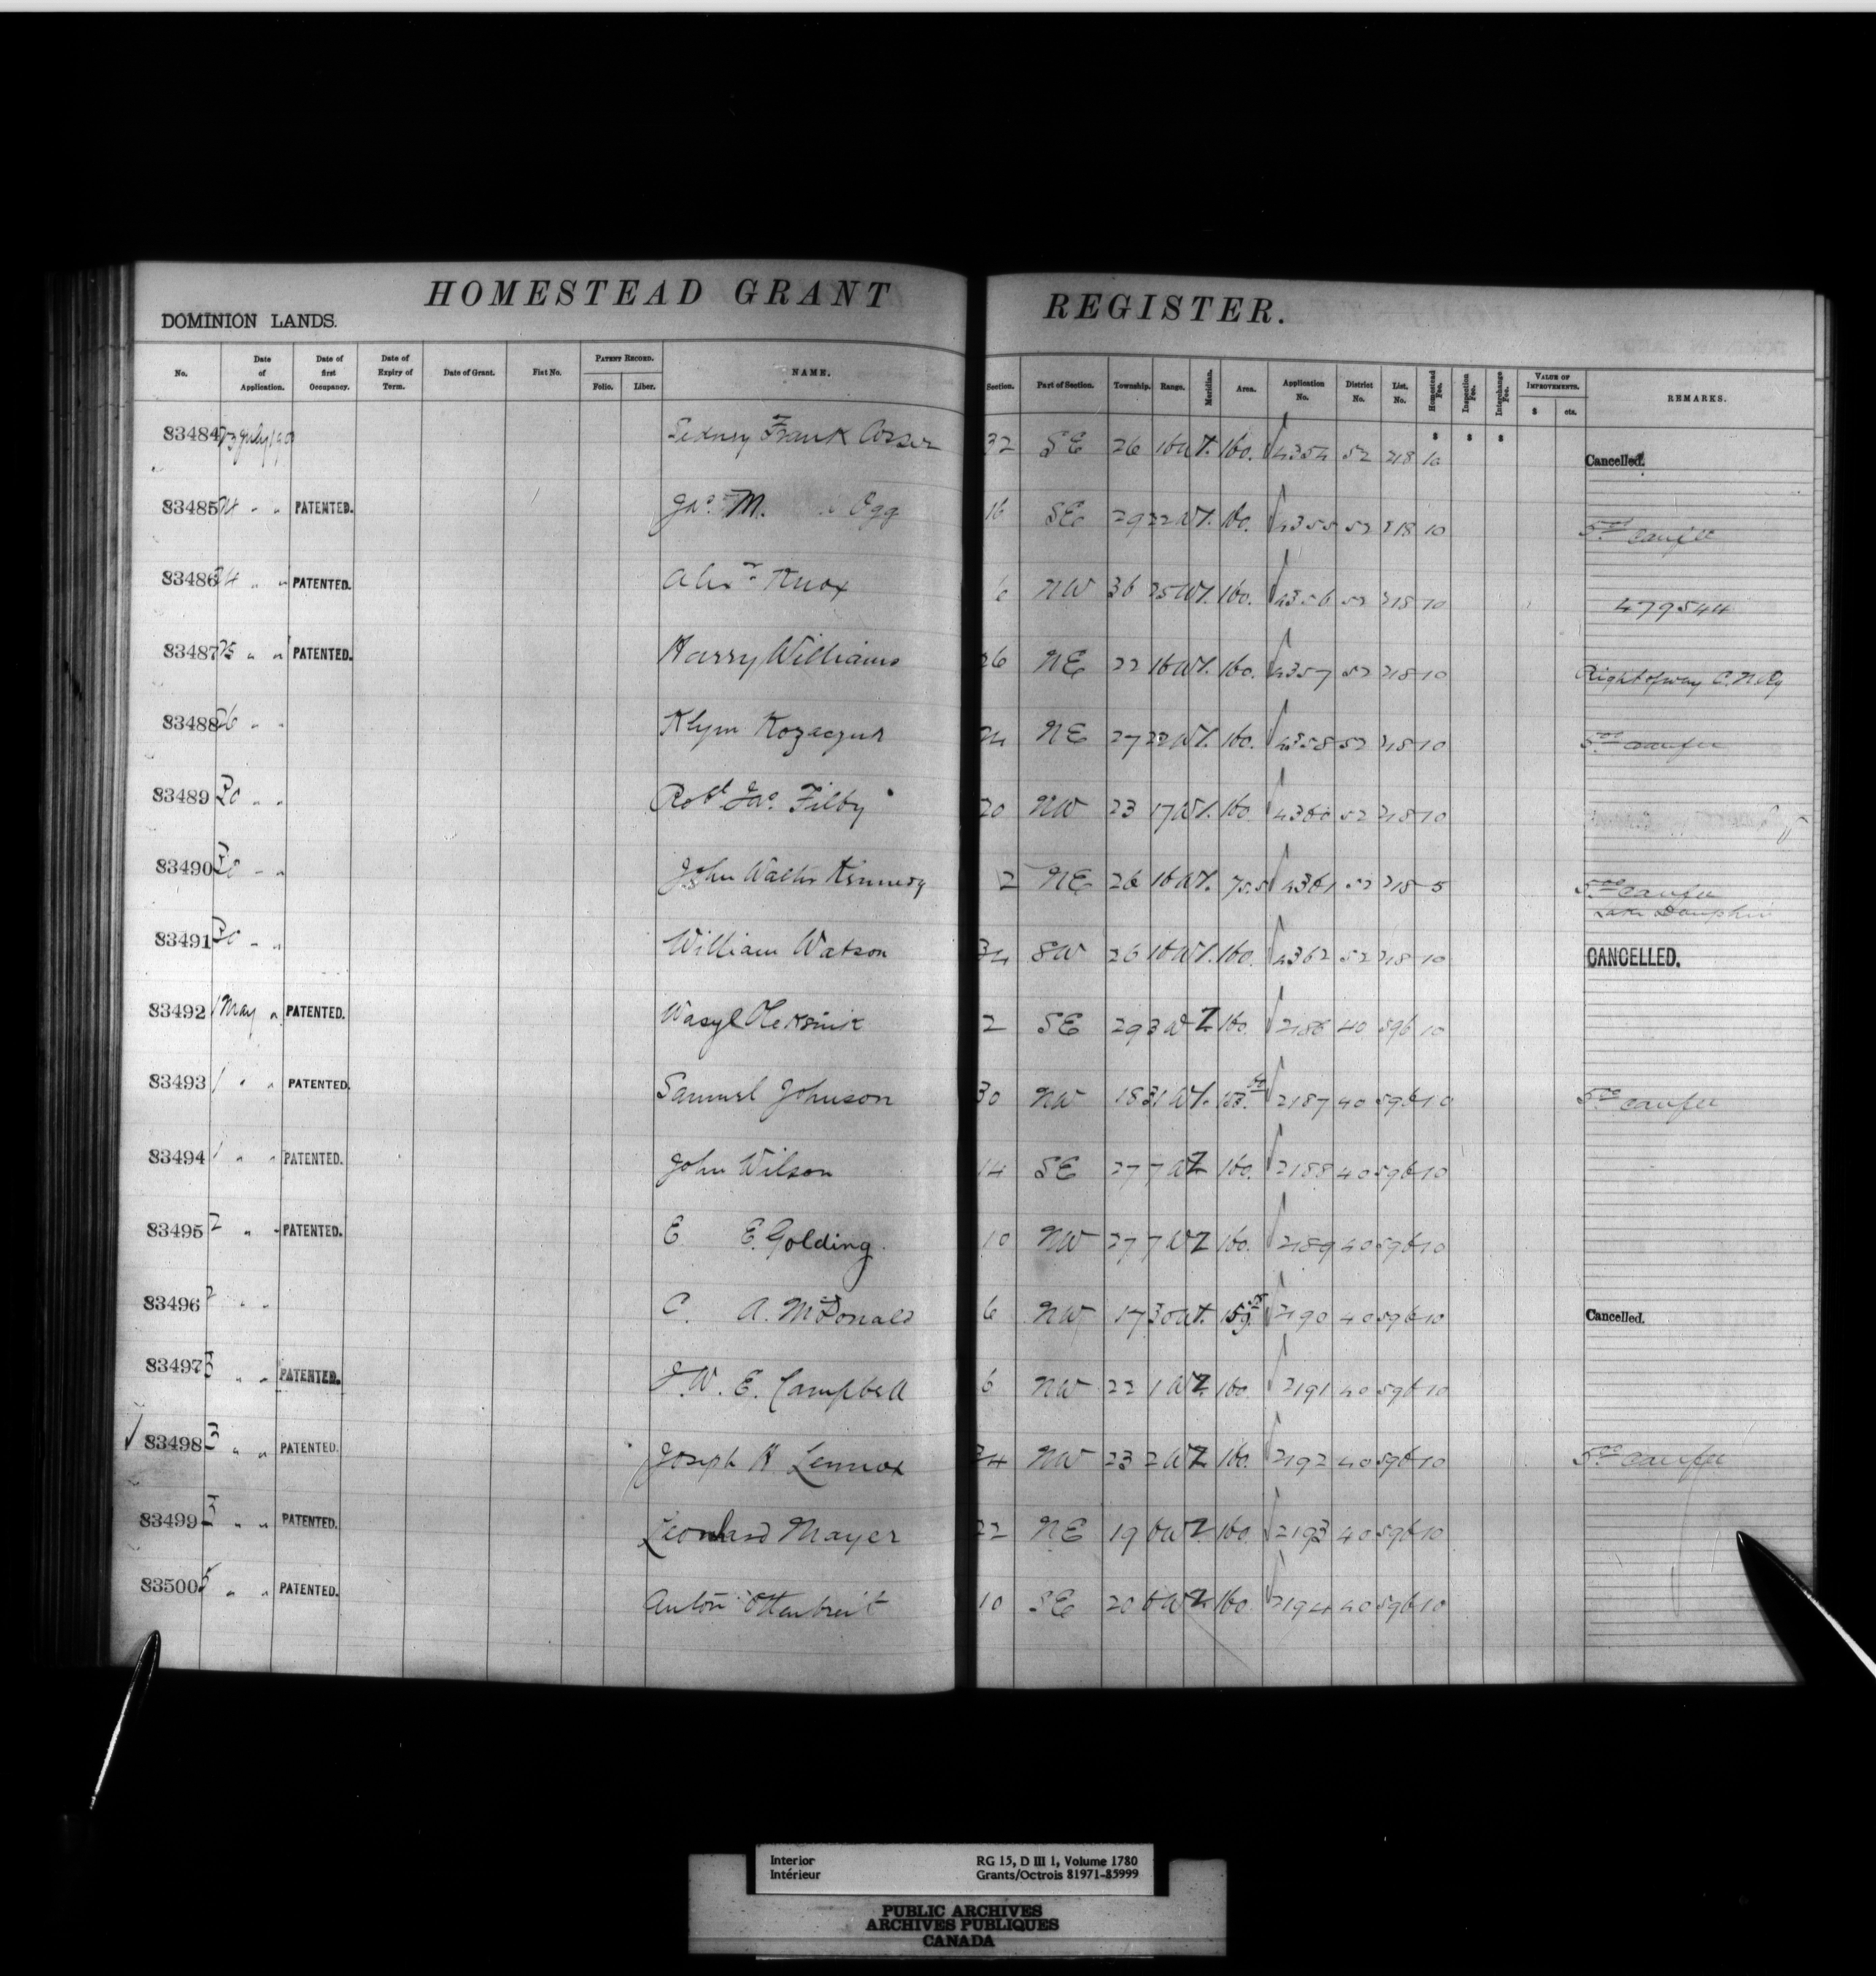 HOMESTEAD GRANT REGISTER.
DOMINION LANDS.
No. Date of Application. Date of first Occupancy. Date of Expiry of Term. Date of Grant. Fiat No. PATENT RECORD. Folio. Liber. NAME. Section. Part of Section. Township. Range. Meridian. Area. Application No. District No. List. No. Homestead Fee. Inspection Fee. Interchange Fee. VALUE OF IMPROVEMENTS. $ cts. REMARKS.
$ $ $
83484 23 July Sidney Frank 32 SE 26 16 W1. 160. 4354 52 218 10 Cancelled.
83485 24 " " PATENTED. Jno. M. Ogg 16 SE 29 22 W1. 160. 4355 52 218 10
83486 24 " " PATENTED. Alexr Knox 6 NW 36 25 W1. 160. 4356 52 218 10 479544
83487 25 " " PATENTED. Harry Williams 26 NE 22 16 W1. 160. 4357 52 218 10 Right of way C.N.Ry
83488 26 " " Klym 24 NE 27 22 W1. 160. 4358 52 218 10
83489 30 " " Robt Jas. Filby 20 NW 23 17 W1. 160 4360 52 218 10
83490 30 " " John Walter Kennedy 2 NE 26 16 W1. 75.5 4361 52 218 5 Lake Dauphin
83491 30 " " William Watson 34 SW 26 16 W1. 160. 4362 52 218 10 CANCELLED.
83492 1 May " PATENTED. Wasyl 2 SE 29 3 W2 160. 2186 40 596 10
83493 1 " " PATENTED. Samuel Johnson 30 NW 18 31 W1. 2187 40 596 10
83494 1 " " PATENTED. John Wilson 14 SE 27 7 W2 160. 2188 40 596 10
83495 2 " " PATENTED. E. E. Golding. 10 NW 27 7 W2 160. 2189 40 596 10
83496 2 " " C. A. McDonald 6 NW 17 30 W1. 2190 40 596 10 Cancelled.
83497 3 " " PATENTED. J. W. E. Campbell 6 NW 22 1 W2 160. 2191 40 596 10
83498 3 " " PATENTED. Joseph H Lennox 34 NW 23 2 W2 160. 2192 40 596 10
83499 3 " " PATENTED. Leonhard Mayer 22 NE 19 6 W2 160. 2193 40 596 10
83500 5 " " PATENTED. Anton Ottenbreit 10 SE 20 6 W2 160. 2194 40 596 10
Interior RG 15, D III 1, Volume 1780
Intérieur Grants/Octrois 81971-85999
PUBLIC ARCHIVES
ARCHIVES PUBLIQUES
CANADA